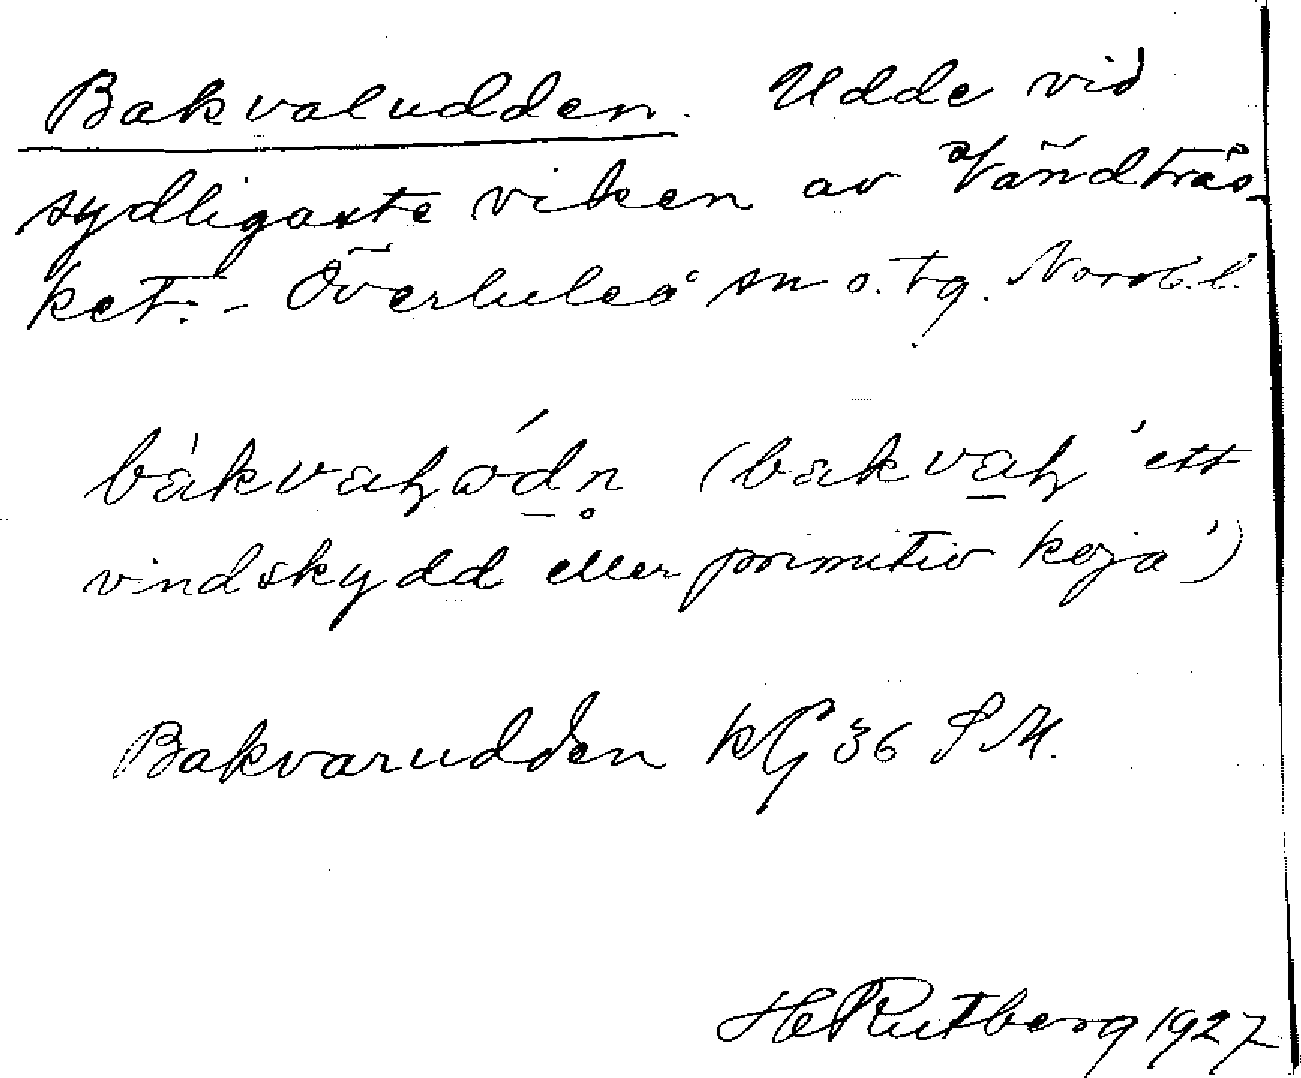 Bakvaludden. Udde vid
sydligaste viken av Vändträs-
ket. - Överluleå sn o. tg. Norrb. l.
bakvaḥ ('ett
vindskydd eller primitiv koja')
Bakvarudden KG 36 S.M.
H Rutberg 1927